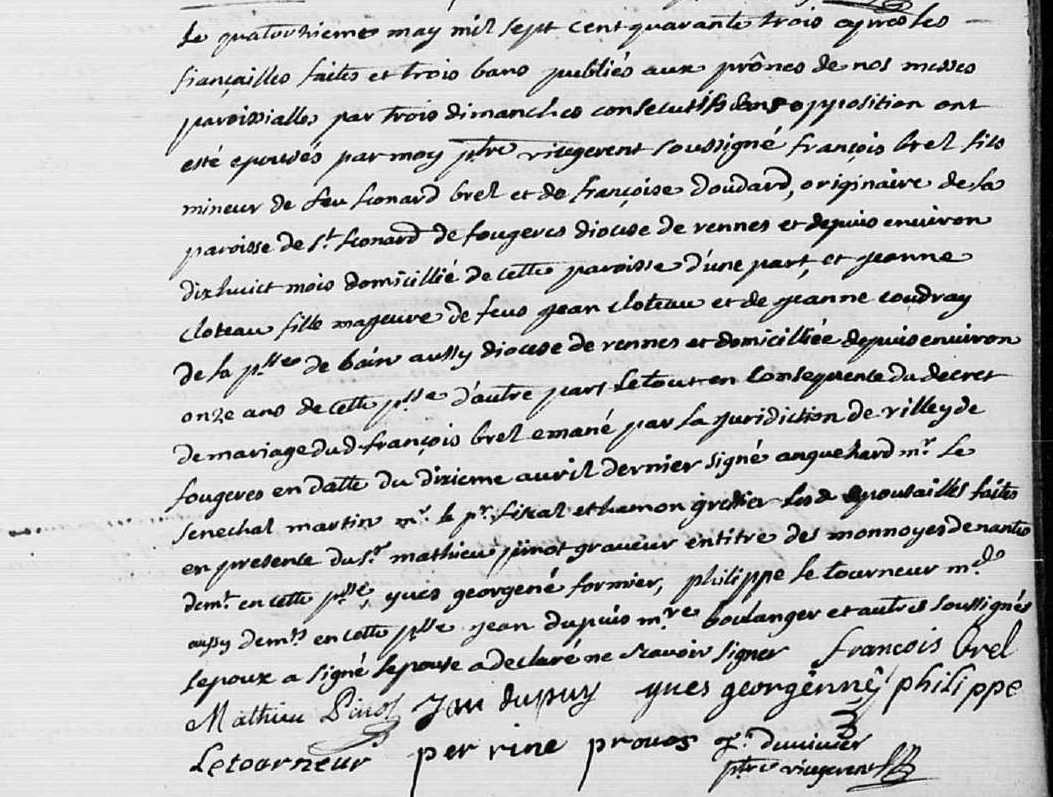 Le quatorzieme may mil sept cent quarante trois apres les
fiançailles faites et trois bans publiés aux prônes de nos messes
paroissialles par trois dimanches consecutifs sans opposition ont
esté epousés par moy ptre vicegerent soussigné françois brel fils
mineur de feu Leonard brel et de françoise doudard, originaire de la
paroisse de St Leonard de fougeres diocese de rennes et depuis environ
dixhuict mois domicillié de cette paroisse d'une part, et jeanne
cloteau fille majeure de feus jean cloteau et de jeanne coudray
de la psse de bain aussy diocese de rennes et domicilliée depuis environ
onze ans de cette psse d'autre part le tout en consequence du decret
de mariage dud françois brel emané par la juridiction de rilley de
fougeres en datte du dixieme avril dernier signé anquehard mr le
senechal martin mr le pr fiscal et hamon greffier les d epousailles faites
en presence du sr mathieu pinot graveur en titre des monnoyes de nantes
demt en cette psse, yves georgené formier, philippe le tourneur md
aussy demts en cette psse jean dupuis mre boulanger et autres soussignés
lepoux a signé lepouse a declaré ne scavoir signer francois brel
Mathieu Pinot Jean dupuy yves georgenne philippe
Letourneur perrine provos
ptre vicegerent